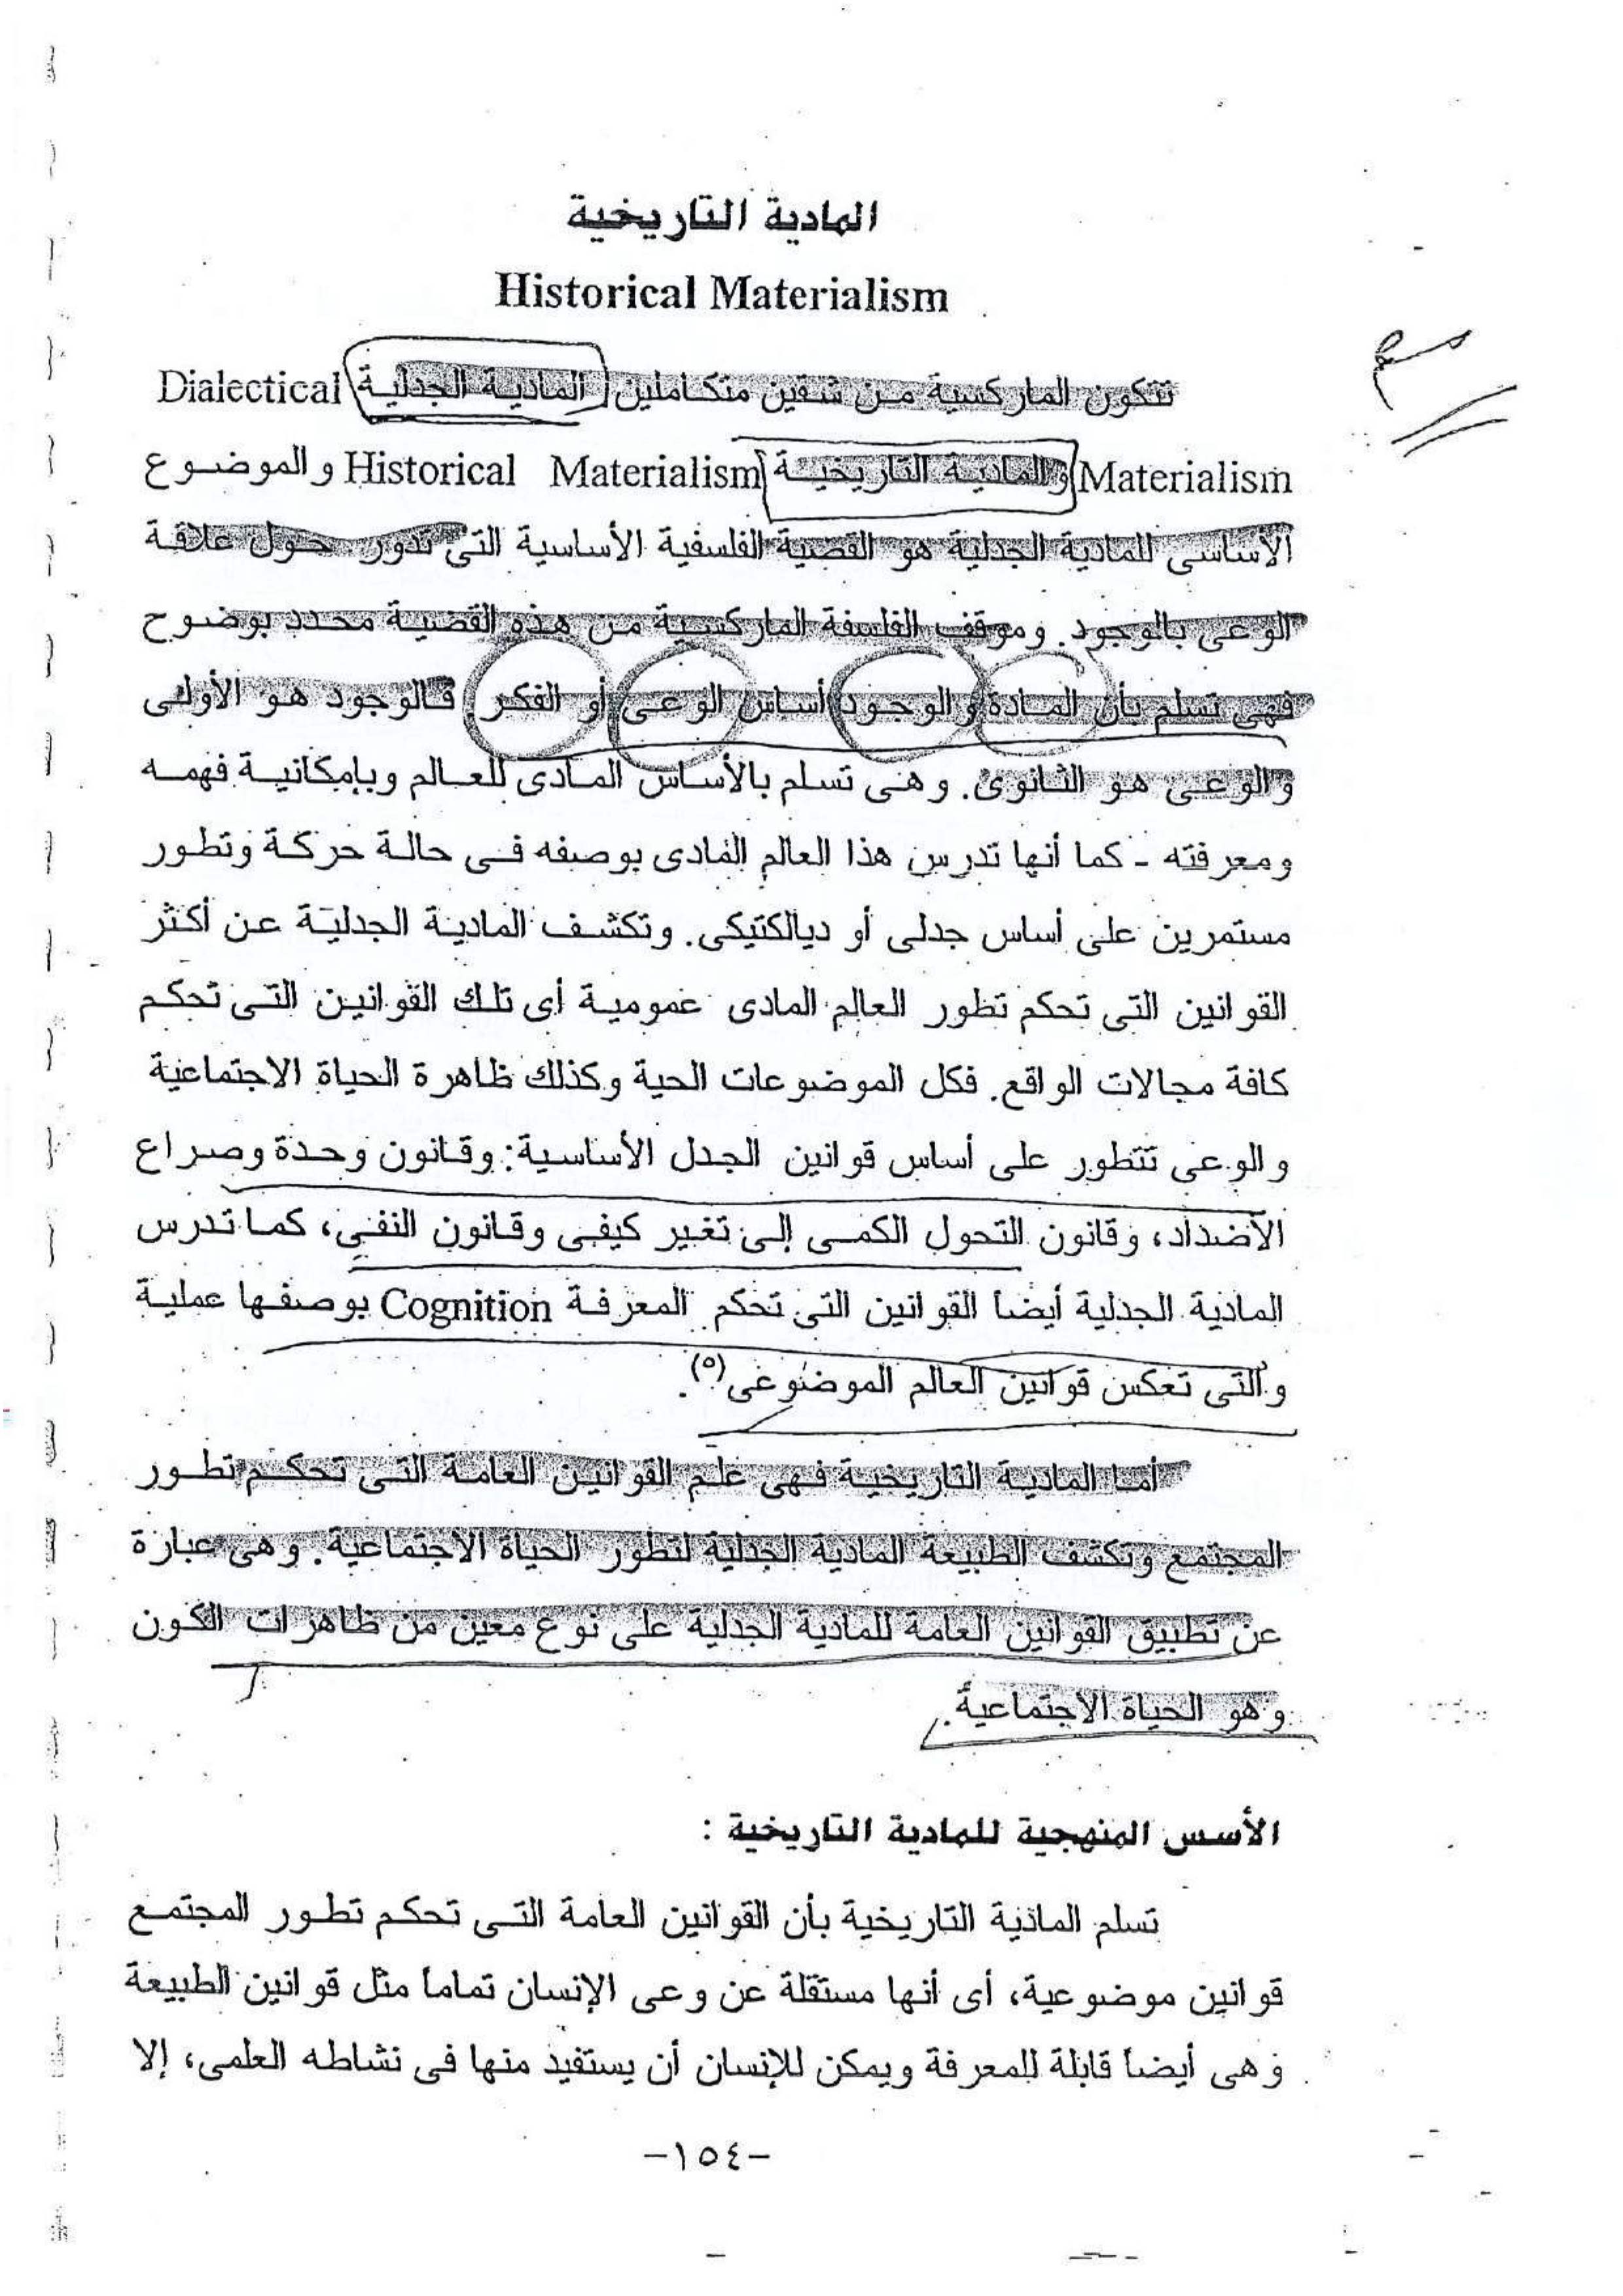 المادية التاريخية
Historical Materialism
تتكون الماركسية من شقين متكاملين المادية الجدلية Dialectical
Materialism والمادية التاريخية Historical Materialism والموضوع
الأساسى للمادية الجدلية هو القضية الفلسفية الأساسية التى تدور حول علاقة
الوعى بالوجود. وموقف الفلسفة الماركسية من هذه القضية محدد بوضوح
فهى تسلم بأن المادة والوجود أساس الوعى أو الفكر. فالوجود هو الأولى
والوعى هو الثانوى. وهى تسلم بالأساس المادى للعالم وبإمكانية فهمه
ومعرفته - كما أنها تدرس هذا العالم المادى بوصفه فى حالة حركة وتطور
مستمرين على أساس جدلى أو ديالكتيكى. وتكشف المادية الجدلية عن أكثر
القوانين التى تحكم تطور العالم المادى عمومية أى تلك القوانين التى تحكم
كافة مجالات الواقع. فكل الموضوعات الحية وكذلك ظاهرة الحياة الاجتماعية
والوعى تتطور على أساس قوانين الجدل الأساسية: وقانون وحدة وصراع
الأضداد، وقانون التحول الكمى إلى تغير كيفى وقانون النفى، كما تدرس
المادية الجدلية أيضاً القوانين التى تحكم المعرفة Cognition بوصفها عملية
والتى تعكس قوانين العالم الموضوعى(٥).
أما المادية التاريخية فهى علم القوانين العامة التى تحكم تطور
المجتمع وتكشف الطبيعة المادية الجدلية لتطور الحياة الاجتماعية. وهى عبارة
عن تطبيق القوانين العامة للمادية الجدلية على نوع معين من ظاهرات الكون
وهو الحياة الاجتماعية.
الأسس المنهجية للمادية التاريخية :
تسلم المادية التاريخية بأن القوانين العامة التى تحكم تطور المجتمع
قوانين موضوعية، أى أنها مستقلة عن وعى الإنسان تماماً مثل قوانين الطبيعة
وهى أيضاً قابلة للمعرفة ويمكن للإنسان أن يستفيد منها فى نشاطه العلمى، إلا
-١٥٤-